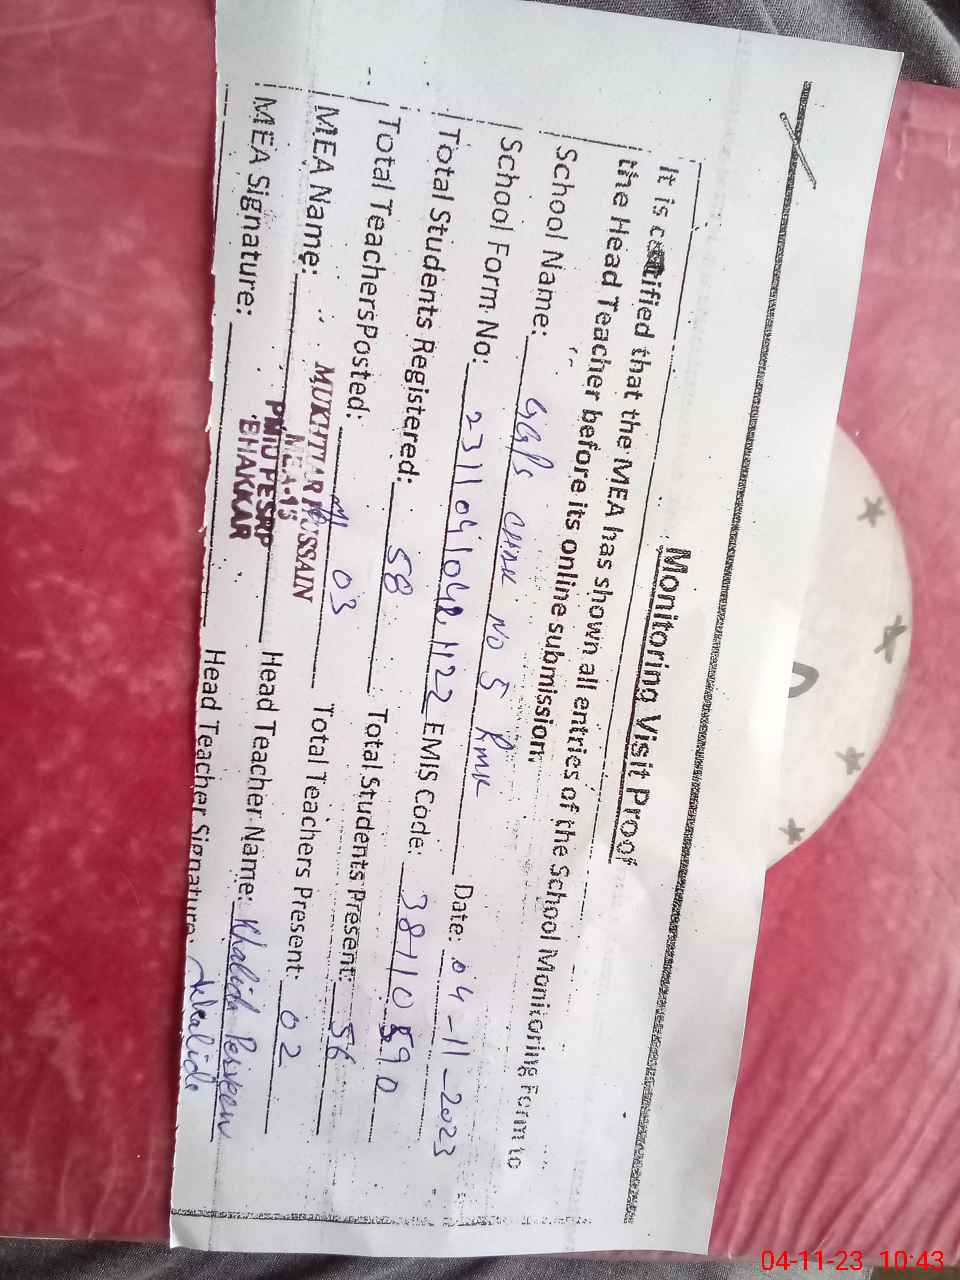 Monitoring Visit Proof
It is certified that the MEA has shown all entries of the School Monitoring Form to
the Head Teacher before its online submission.
School Name: GGPS CHAK NO 5 RMK Date: 04-11-2023
School Form No: 23110410421122 EMIS Code: 38110590
Total Students Registered: 58 Total Students Present: 56
Total Teachers Posted: 03 Total Teachers Present: 02
MEA Name: MUKHTIAR HUSSAIN Head Teacher Name: Khalida Perveen
MEA-15
PMIU PESRP
BHAKKAR
MEA Signature: Head Teacher Signature: Khalida
04-11-23 10:43